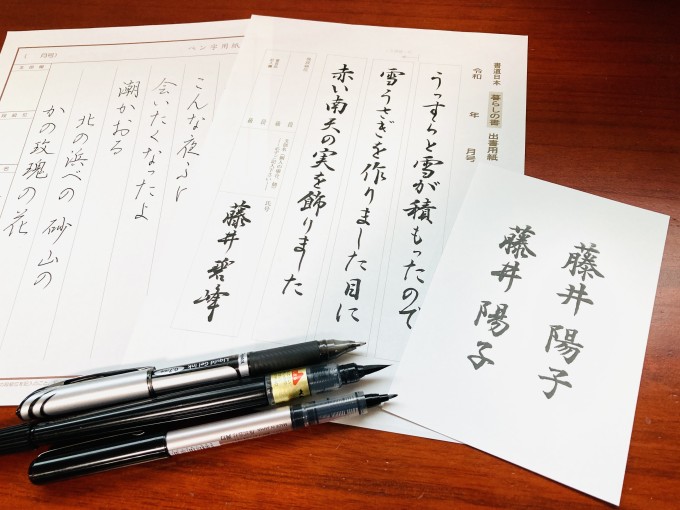 ペン字用紙
こんな夜ふけ
会いたくなったよ
潮かおる
北の浜べの砂山の
かの玫瑰の花
書道日本
暮らしの書
出書用紙
令和 年 月号
うっすらと雪が積もったので
雪うさぎを作りました目に
赤い南天の実を飾りました
藤井碧峰
藤井陽子
藤井陽子
Liquid Gel Ink